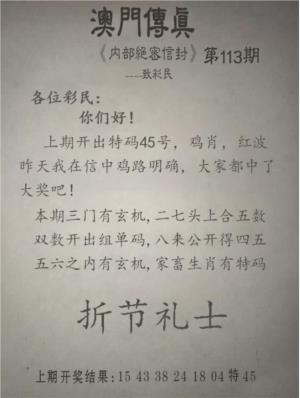 澳門傳眞
《内部絕密信封》第113期
----致彩民
各位彩民：
你们好！
上期开出特码45号，鸡肖，红波
昨天我在信中鸡路明确，大家都中了
大奖吧！
本期三门有玄机，二七头上合五数
双数开出组单码，八来公开得四五
五六之内有玄机，家畜生肖有特码
折节礼士
上期开奖结果：15 43 38 24 18 04 特 45